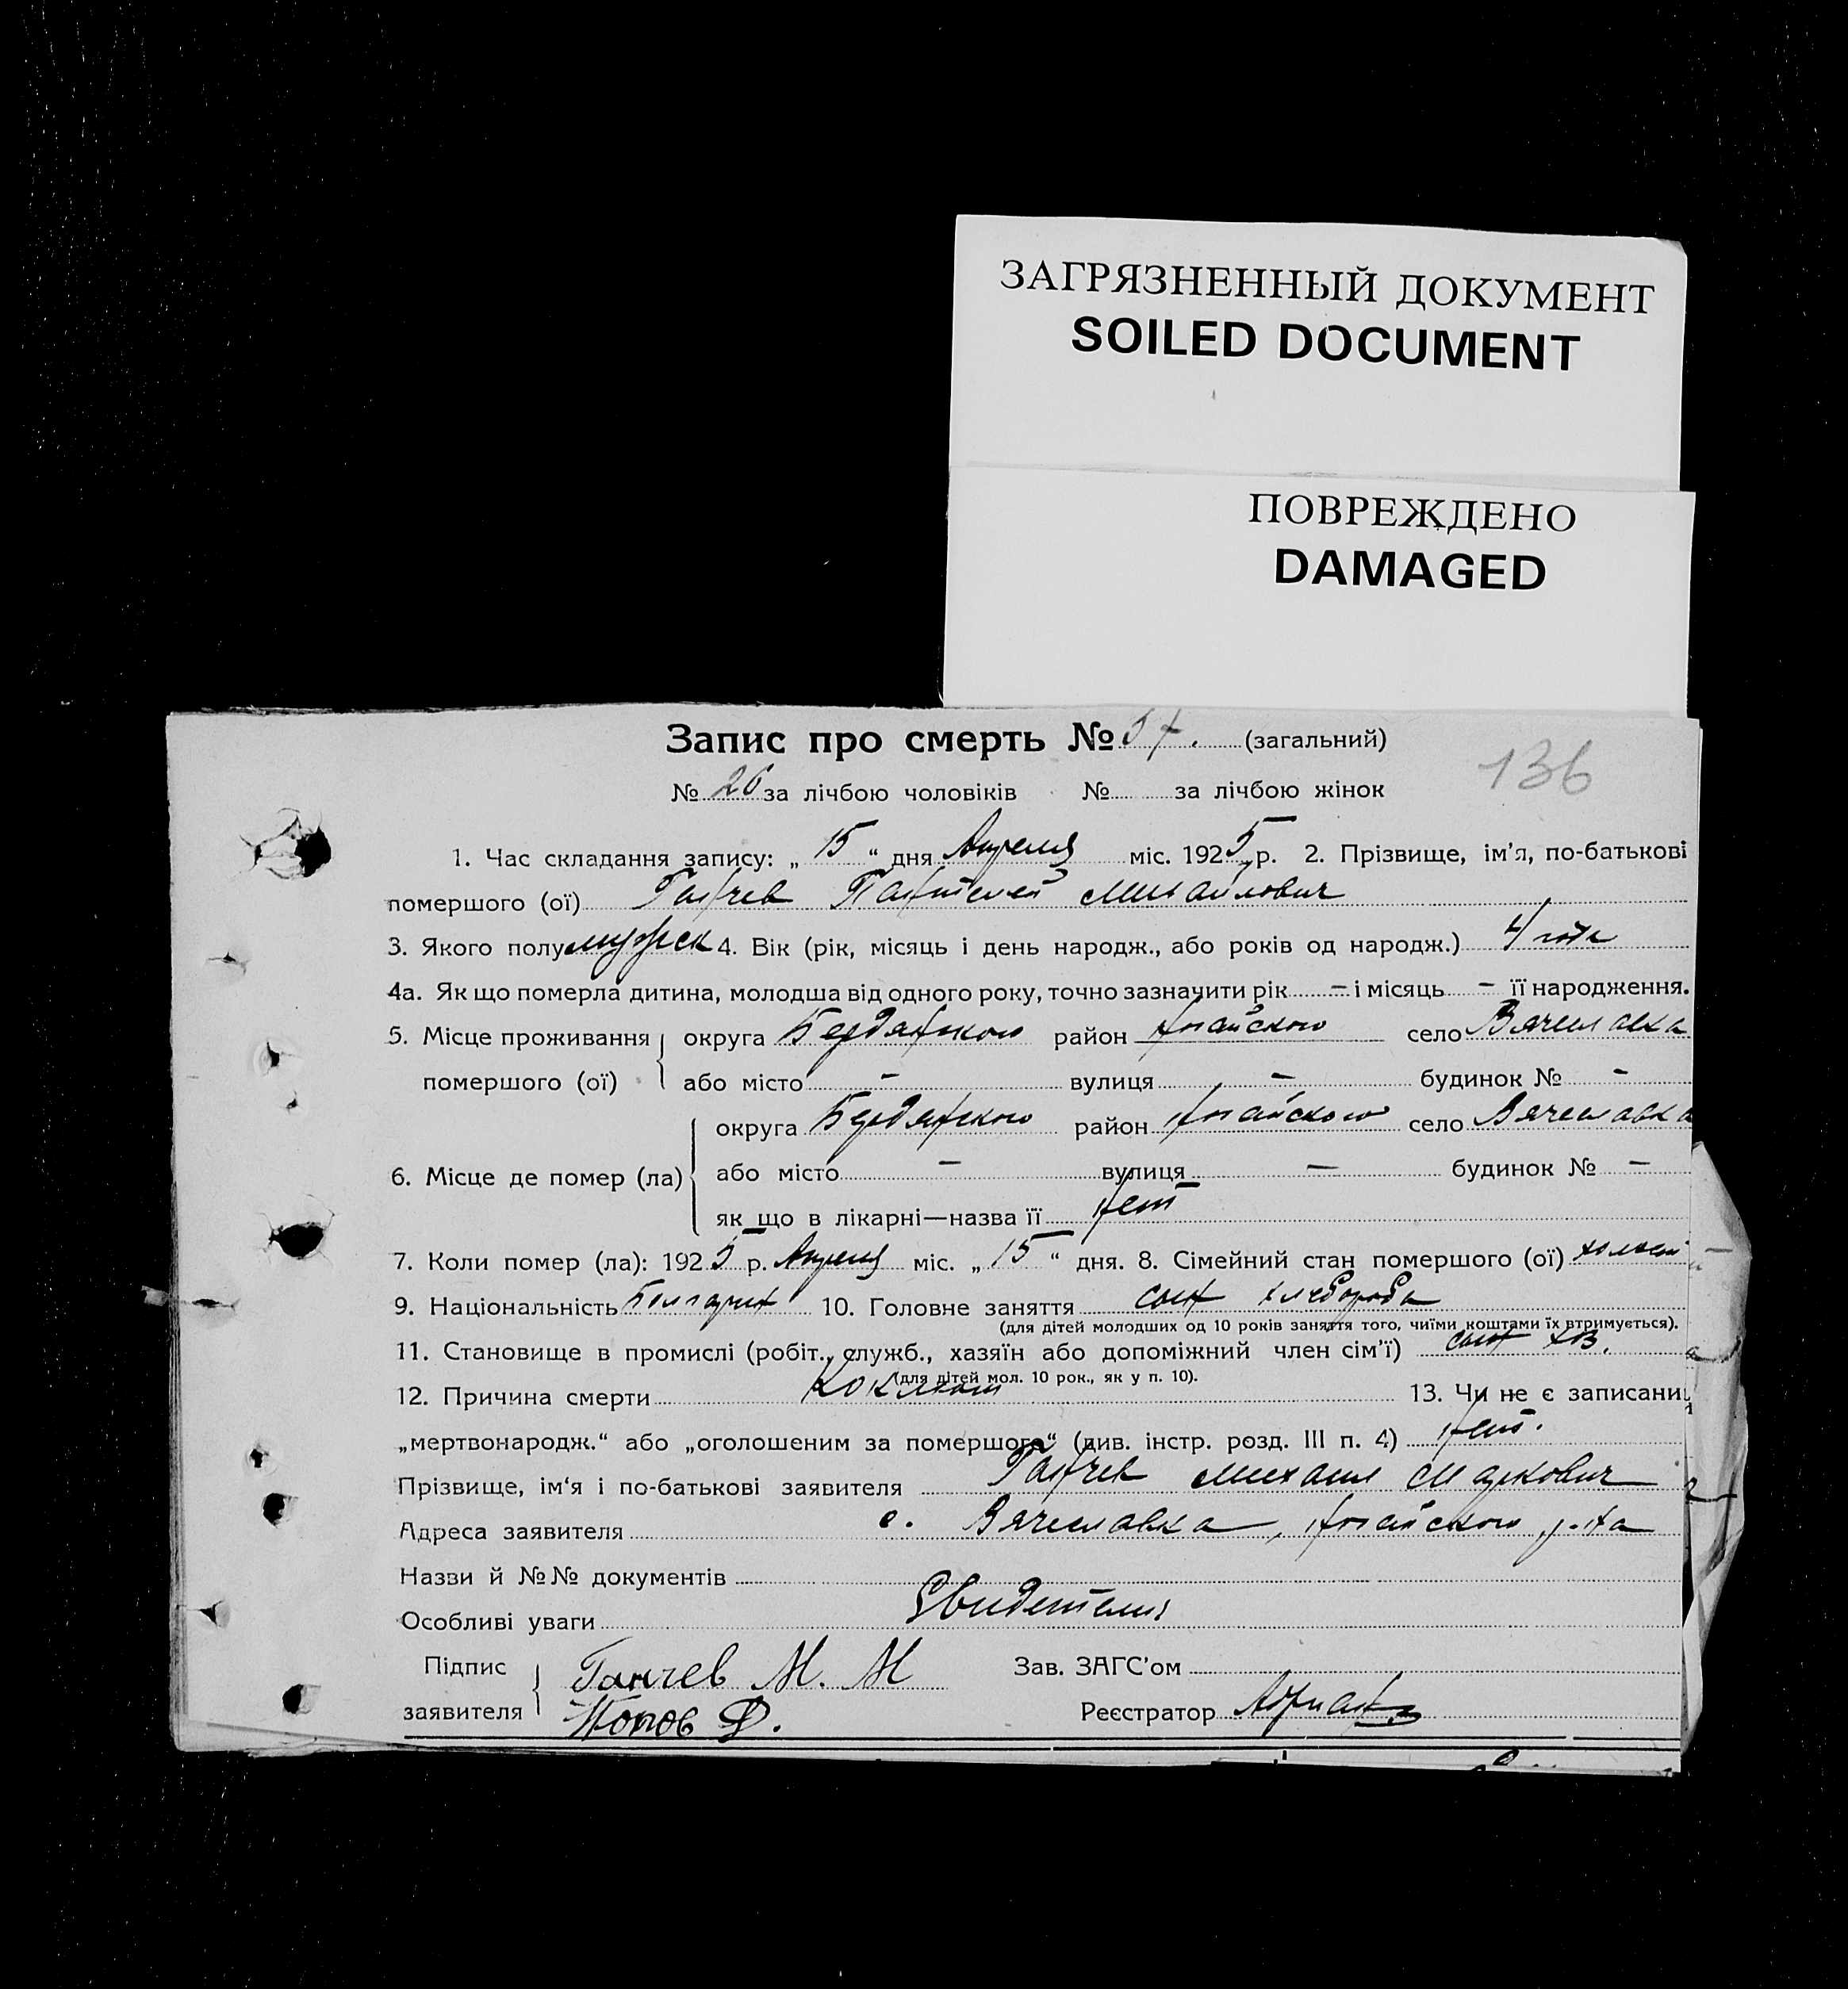 ЗАГРЯЗНЕННЫЙ ДОКУМЕНТ
SOILED DOCUMENT
ПОВРЕЖДЕНО
DAMAGED
Запис про смерть № 57. (загальний)
136
№ 26 за лічбою чоловіків № за лічбою жінок
1. Час складання запису: „ 15 “ дня Апреля міс. 1925 р. 2. Прізвище, ім’я, по-батькові
помершого (ої) Ганчев Пантелей Михайлович
3. Якого полу мужск 4. Вік (рік, місяць і день народж., або років од народж.) 4 года
4а. Як що померла дитина, молодша від одного року, точно зазначити рік – і місяць – її народження.
5. Місце проживання округа Бердянского район Ногайского село Вячеславка
помершого (ої) або місто – вулиця – будинок № –
округа Бердянского район Ногайского село Вячеславка
6. Місце де помер (ла) або місто – вулиця – будинок № –
як що в лікарні—назва її Нет
7. Коли помер (ла): 1925 р. Апреля міс. „ 15 “ дня. 8. Сімейний стан помершого (ої) холост
9. Національність Болгарин 10. Головне заняття сын хлебороба
(для дітей молодших од 10 років заняття того, чиїми коштами їх втримується).
11. Становище в промислі (робіт., служб., хазяїн або допоміжний член сім’ї) сын хоз.
(для дітей мол. 10 рок., як у п. 10).
12. Причина смерти Коклюш 13. Чи не є записаний
„мертвонародж.“ або „оголошеним за помершого“ (див. інстр. розд. III п. 4) Нет.
Прізвище, ім‘я і по-батькові заявителя Ганчев Михаил Маркович
Адреса заявителя с. Вячеславка, Ногайского р-на
Назви й №№ документів
Особливі уваги Свидетели
Підпис Ганчев М. М Зав. ЗАГС’ом
заявителя Попов Ф. Реєстратор